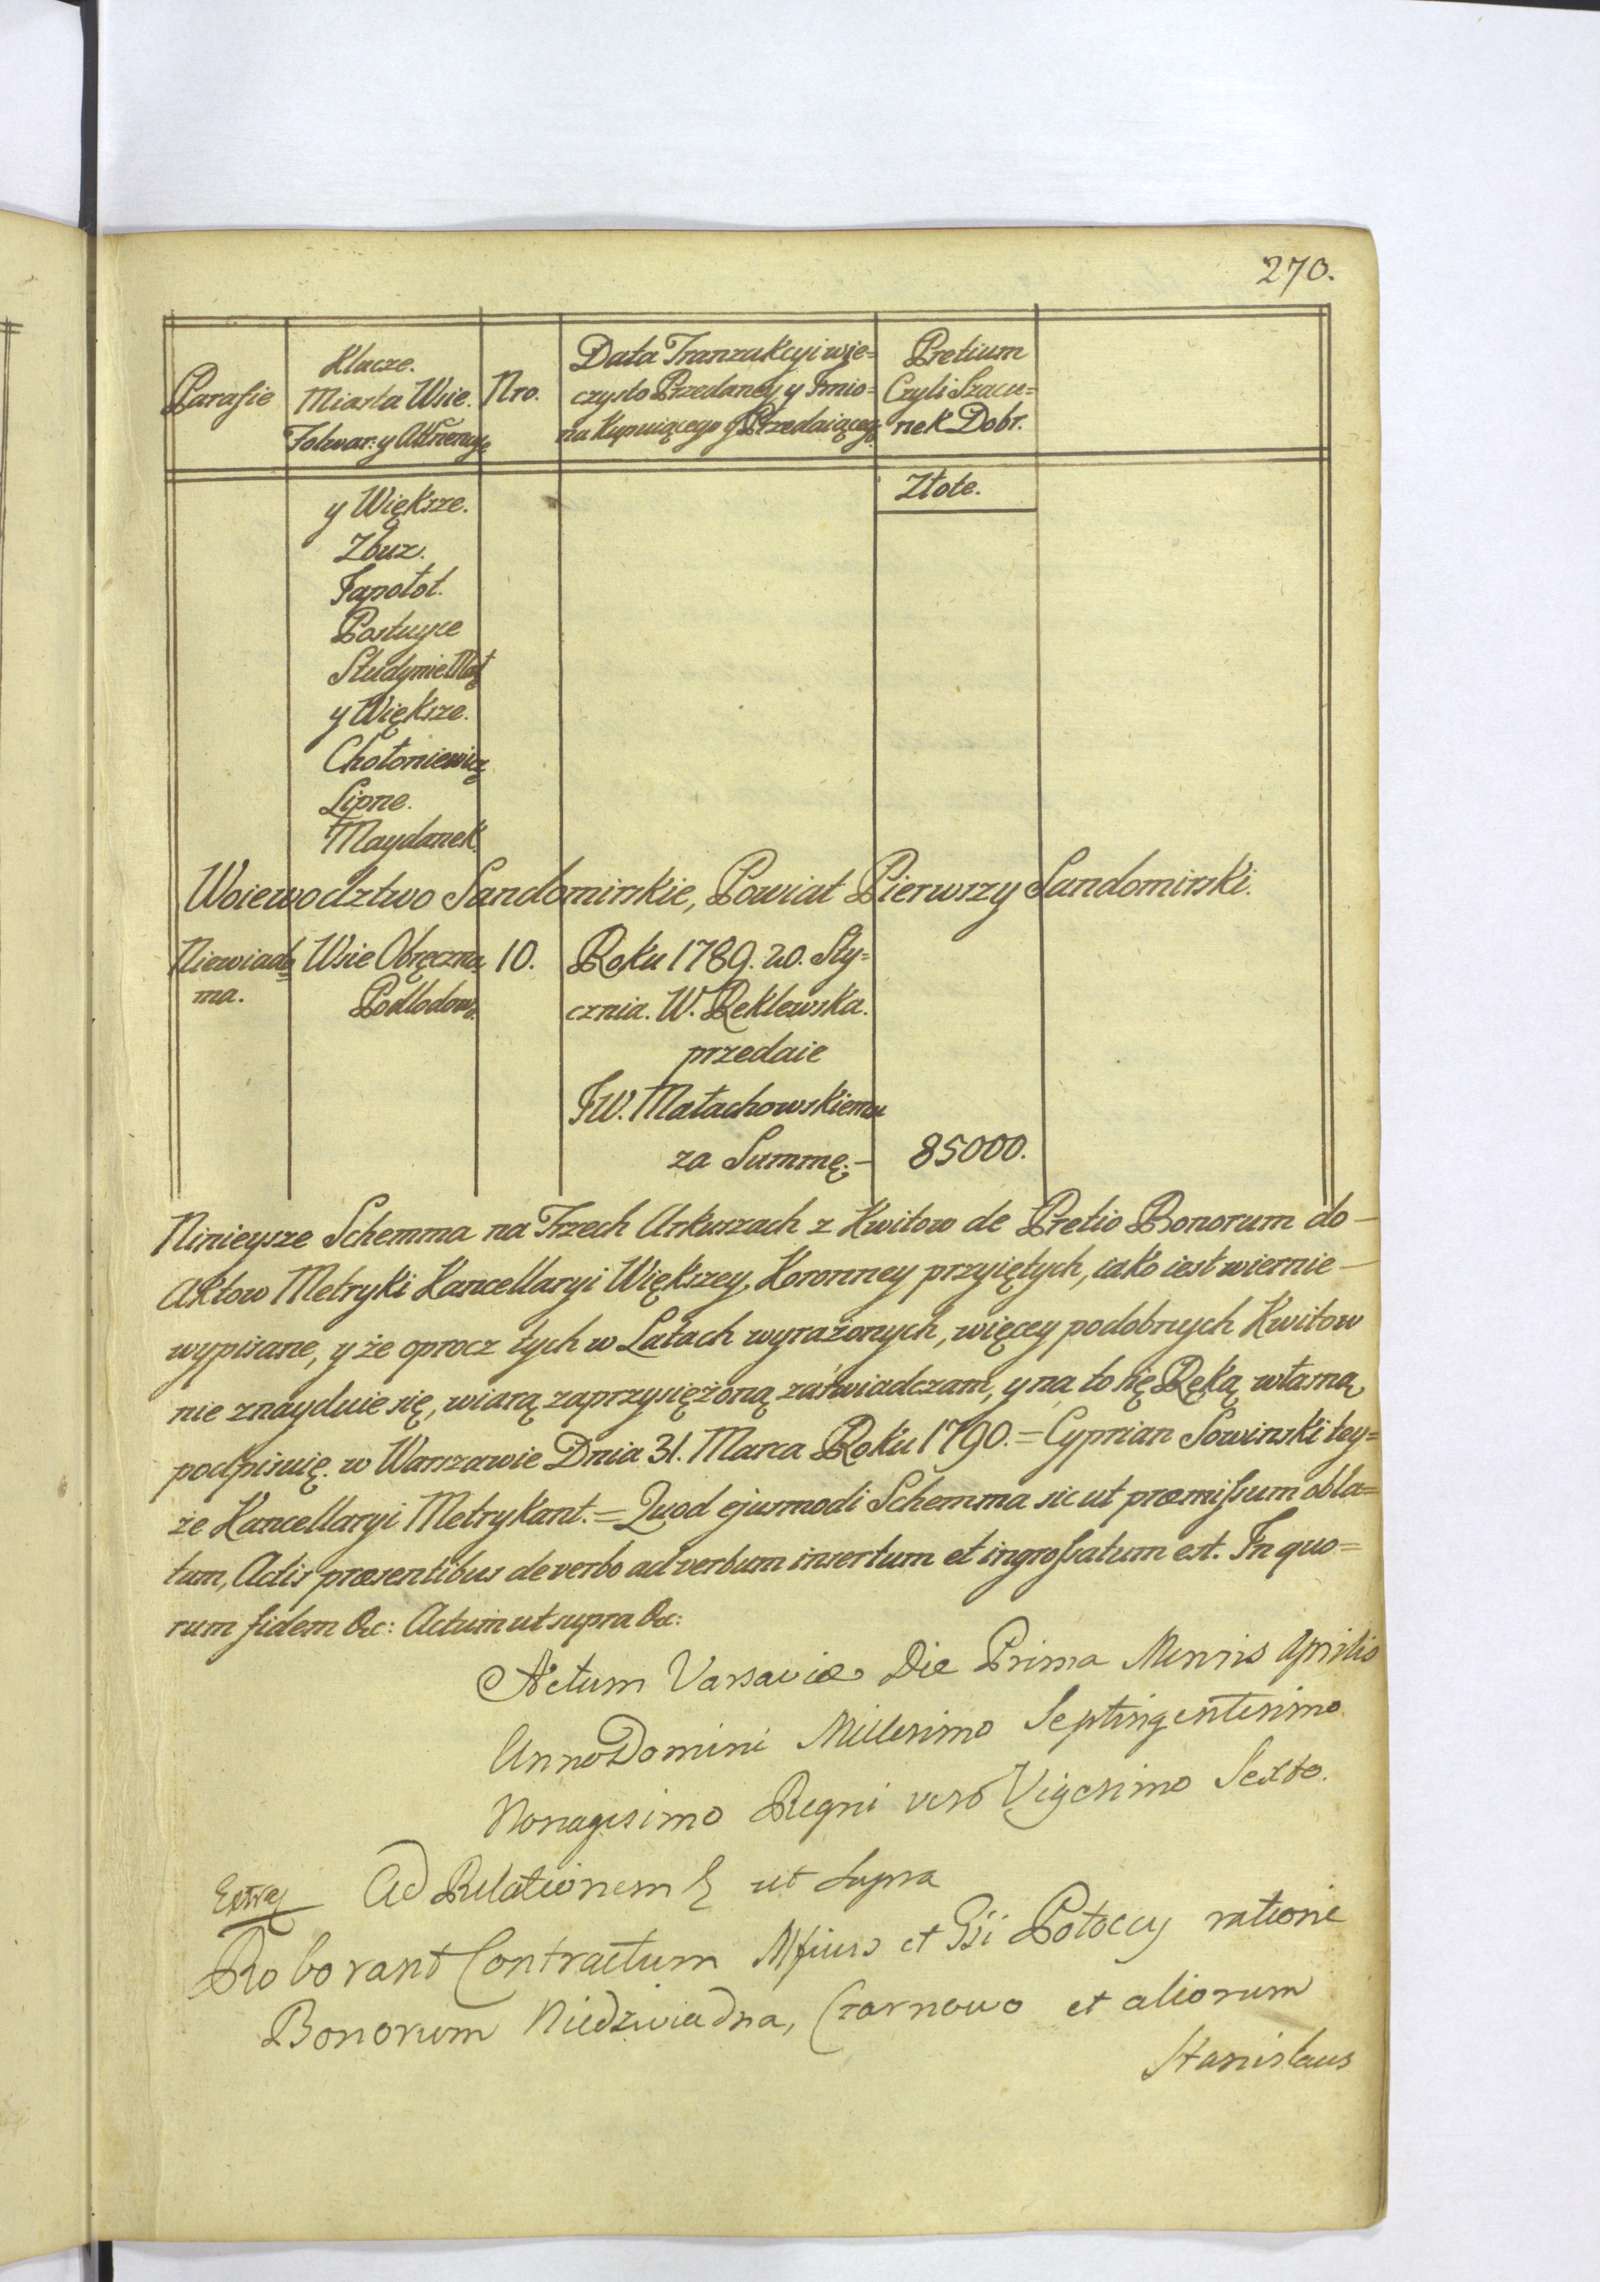 270.
Parafie
Klucze.
Miasta Wsie.
Folwar: y
Nro.
Data Tranzakcyi wie=
czysto Przedaney y Jmio=
na Kupuiącego y Przedaiącego.
Pretium
Czyli Szacu=
nek Dobr.
Złote.
y Większe.
Zbuz.
Postuyce
Studynie Mał
y Większe.
Chołoniewicz
Lipne.
Maydanek.
Woiewodztwo Sandomirskie, Powiat Pierwszy Sandomirski.
Niewiado
ma.
Wsie Obręczna
Podlodow.
10.
Roku 1789. 20. Sty=
cznia. W. Reklewska.
przedaie
JW. Małachowskiemu
za Summę.—
85000.
Ninieysze Schemma na Trzech Arkuszach z Kwitow de Pretio Bonorum do—
Aktow Metryki Kancellaryi Większey Koronney przyiętych, iako iest wiernie—
wypisane, y że oprocz tych w Latach wyrażonych, więcey podobnych Kwitow
nie znayduie się, wiarą zaprzysiężoną zaświadczam, y na to się Ręką własną
podpisuię. w Warszawie Dnia 31. Marca Roku 1790.= Cyprian Sowinski tey=
że Kancellaryi Metrykant.= Quod ejusmodi Schemma sic ut præmissum obla=
tum, Actis præsentibus de verbo ad verbum insertum et ingrossatum est. In quo=
rum fidem &c: Actum ut supra &c:
Actum Varsaviæ Die Prima Mensis Aprilis
Anno Domini Millesimo Septingentesimo
Nonagesimo Regni vero Vigesimo Sexto.
Ad Relationem ut supra
Roborant Contractum et Potoccy ratione
Bonorum Niedzwiadna, Czarnowo et aliorum
Stanislaus